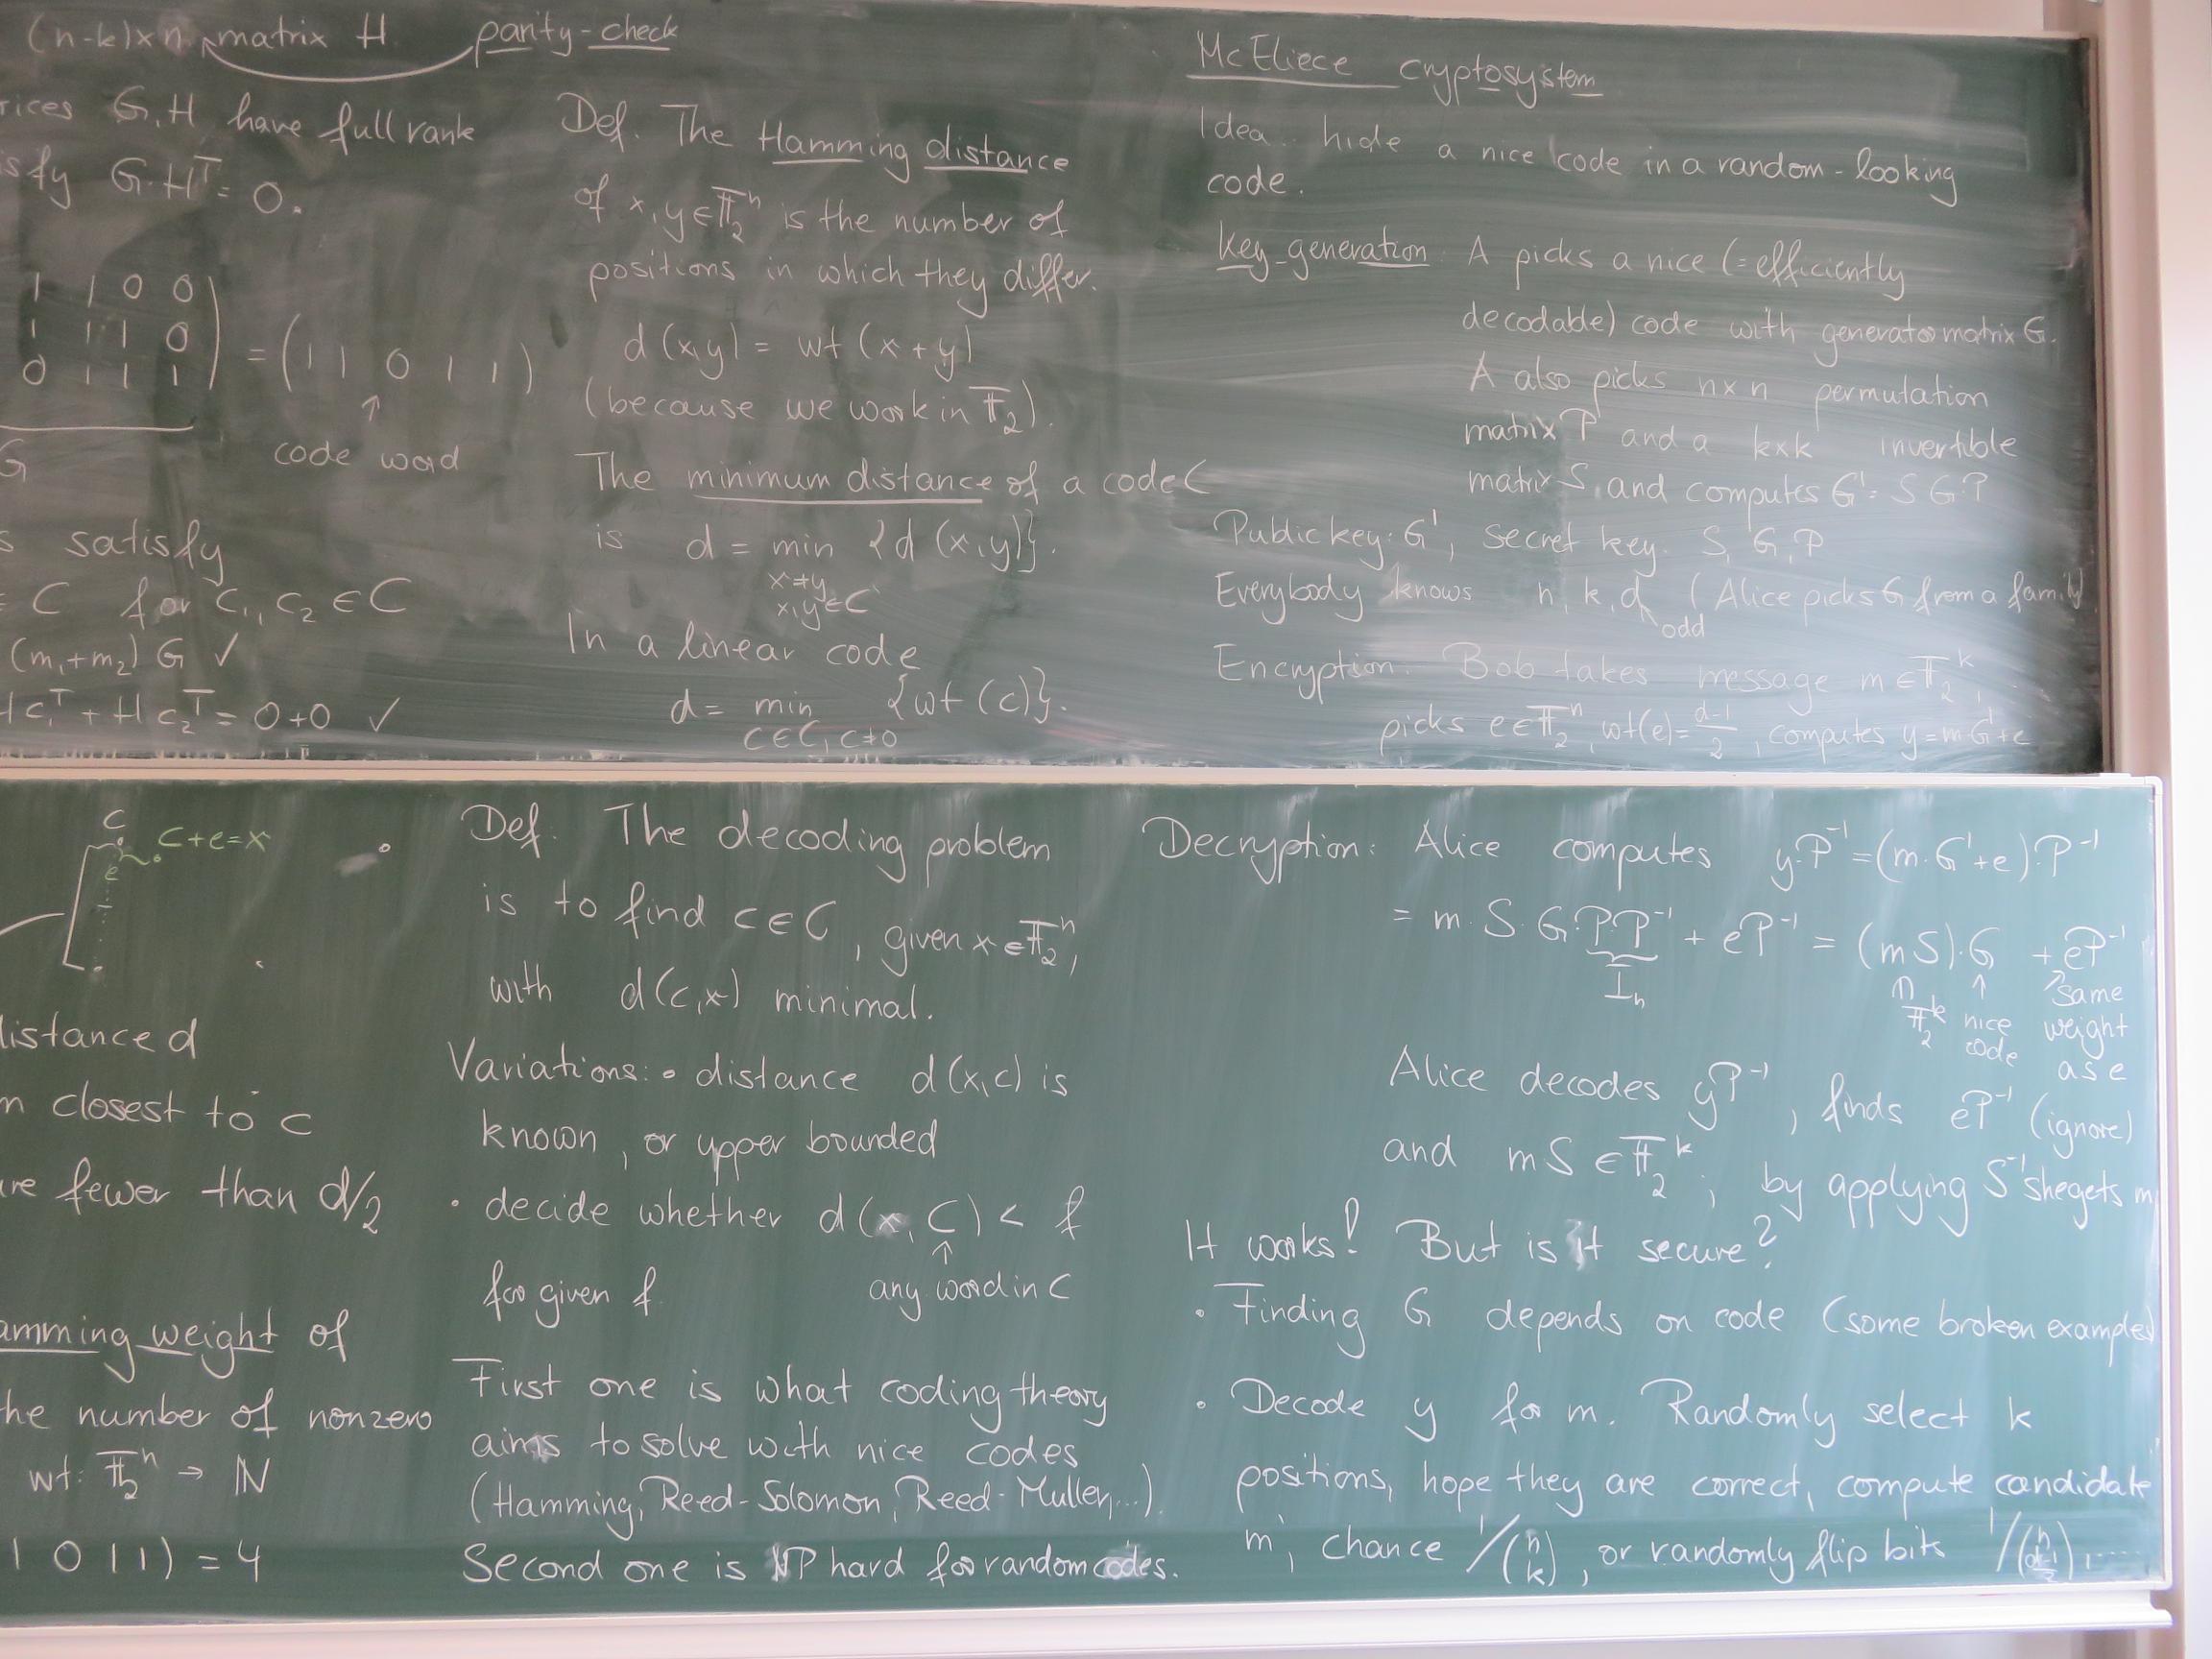 (n-k)×n matrix H parity-check
rices G,H have full rank
isfy G·Hᵀ = 0.
1 1 0 0
1 1 1 0
0 1 1 1
= (1 1 0 1 1)
↑
G code word
s satisfy
= C for c₁, c₂ ∈ C
(m₁+m₂) G ✓
H c₁ᵀ + H c₂ᵀ = 0+0 ✓
Def. The Hamming distance
of x,y∈𝔽₂ⁿ is the number of
positions in which they differ.
d(x,y) = wt(x+y)
(because we work in 𝔽₂).
The minimum distance of a code C
is d = min {d(x,y)}.
x≠y
x,y∈C
In a linear code
d = min {wt(c)}.
c∈C, c≠0
McEliece cryptosystem
Idea: hide a nice code in a random-looking
code.
Key-generation: A picks a nice (=efficiently
decodable) code with generator matrix G.
A also picks n×n permutation
matrix P and a k×k invertible
matrix S, and computes G' = S G·P
Public key: G', secret key: S, G, P
Everybody knows n, k, d (Alice picks G from a family)
odd
Encryption: Bob takes message m∈𝔽₂ᵏ,
picks e∈𝔽₂ⁿ, wt(e)=(d-1)/2, computes y=mG'+e
c
c+e=x
e
distance d
n closest to c
re fewer than d/2
amming weight of
he number of nonzero
wt: 𝔽₂ⁿ → ℕ
1 0 1 1) = 4
Def. The decoding problem
is to find c∈C, given x∈𝔽₂ⁿ,
with d(c,x) minimal.
Variations: • distance d(x,c) is
known, or upper bounded
• decide whether d(x,C) < f
↑
for given f any word in C
First one is what coding theory
aims to solve with nice codes
(Hamming, Reed-Solomon, Reed-Muller,...).
Second one is NP hard for random codes.
Decryption: Alice computes y·P⁻¹=(m·G'+e)·P⁻¹
= m·S·G·P·P⁻¹ + eP⁻¹ = (mS)·G + eP⁻¹
Iₙ
∩ ↑ same
𝔽₂ᵏ nice weight
code as e
Alice decodes yP⁻¹, finds eP⁻¹ (ignore)
and mS ∈𝔽₂ᵏ; by applying S⁻¹ she gets m
It works! But is it secure?
• Finding G depends on code (some broken examples)
• Decode y for m. Randomly select k
positions, hope they are correct, compute candidate
m', chance 1/(n k), or randomly flip bits 1/(n (d-1)/2), ....